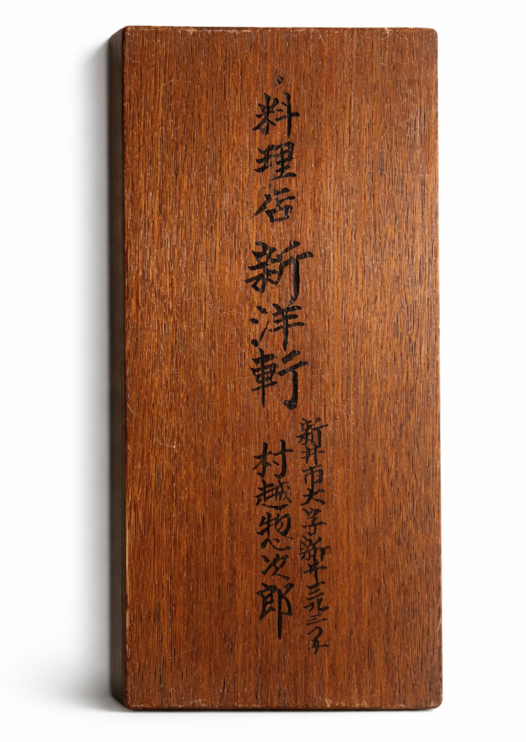 新井市大字新井三九三つ子
料理店 新洋軒 村越惣次郎